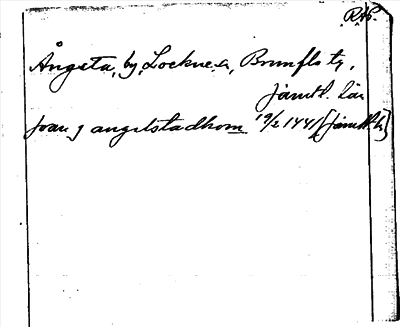 RAP.
Ångsta, by, Lockne s, Brunflo tg,
Jämtl. län
Joan j angilstadhom 19/2 1441 [Jämtl. h]